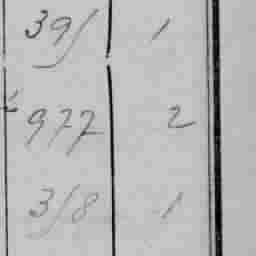 395 1
977 2
358 1